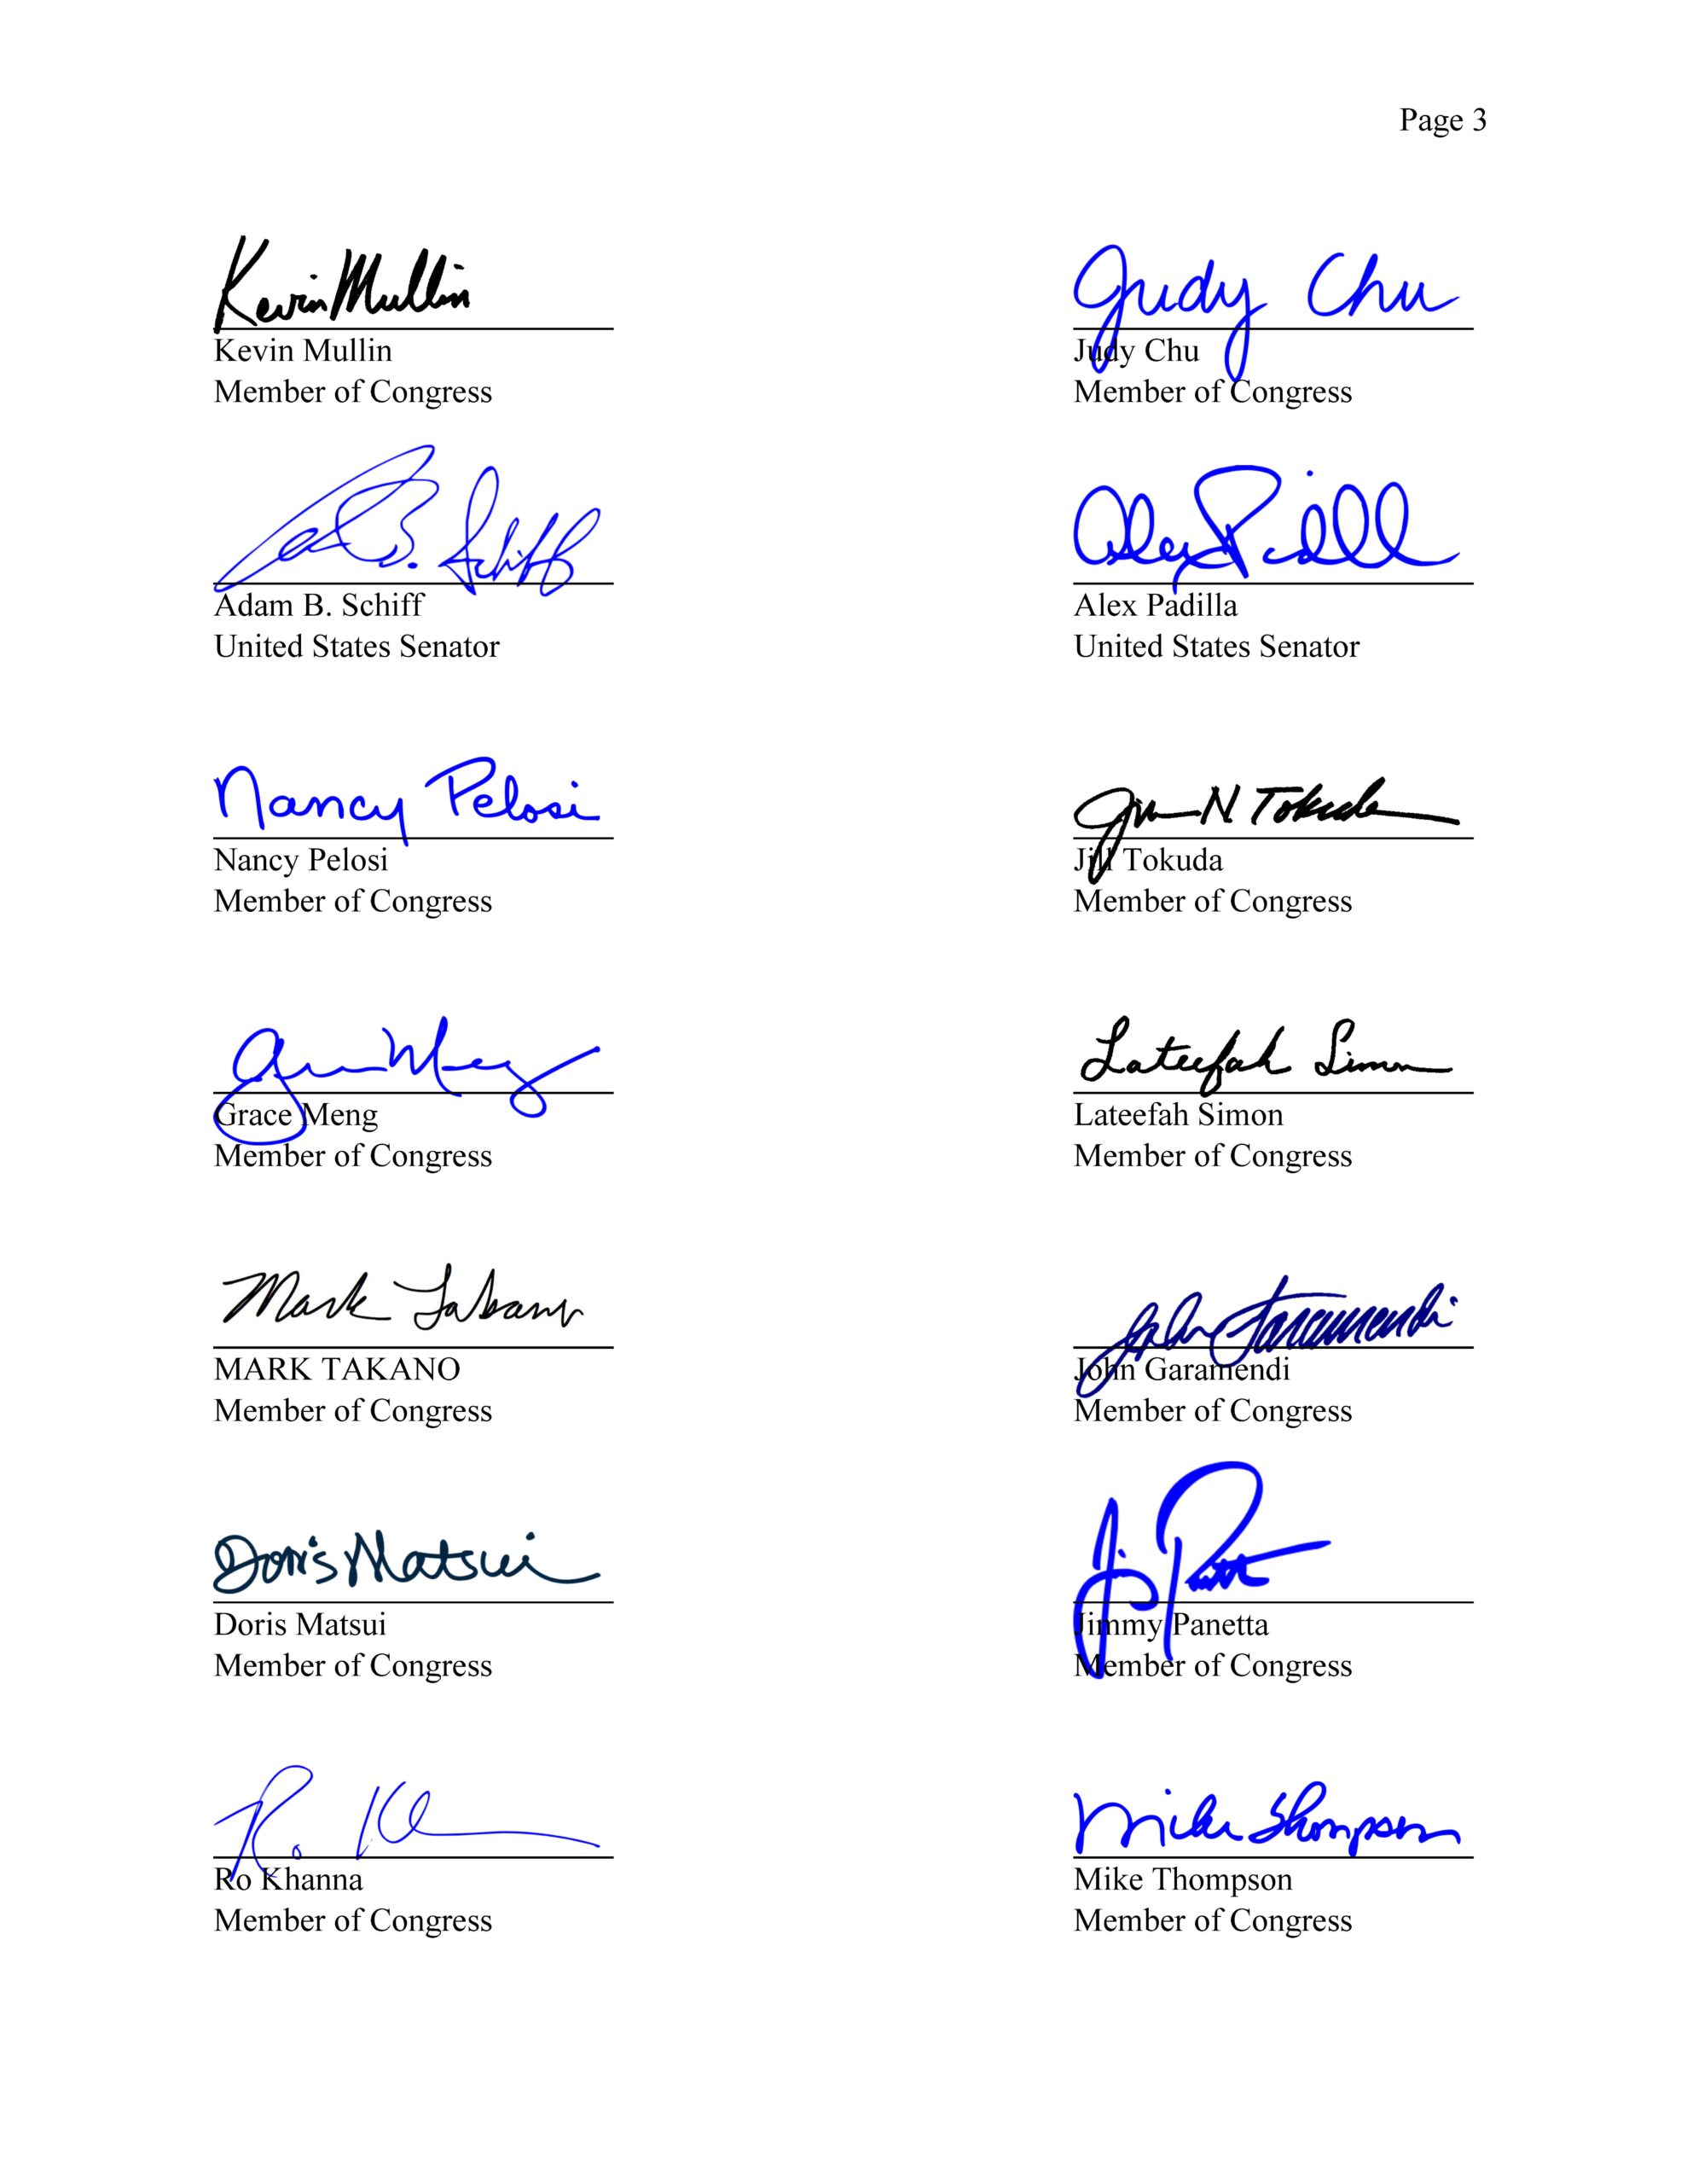 Page 3
Kevin Mullin
Judy Chu
Kevin Mullin
Judy Chu
Member of Congress
Member of Congress
Adam B. Schiff
Alex Padilla
Adam B. Schiff
Alex Padilla
United States Senator
United States Senator
Nancy Pelosi
Jill N Tokuda
Nancy Pelosi
Jill Tokuda
Member of Congress
Member of Congress
Grace Meng
Lateefah Simon
Grace Meng
Lateefah Simon
Member of Congress
Member of Congress
Mark Takano
John Garamendi
MARK TAKANO
John Garamendi
Member of Congress
Member of Congress
Doris Matsui
Doris Matsui
Jimmy Panetta
Member of Congress
Member of Congress
Mike Thompson
Ro Khanna
Mike Thompson
Member of Congress
Member of Congress